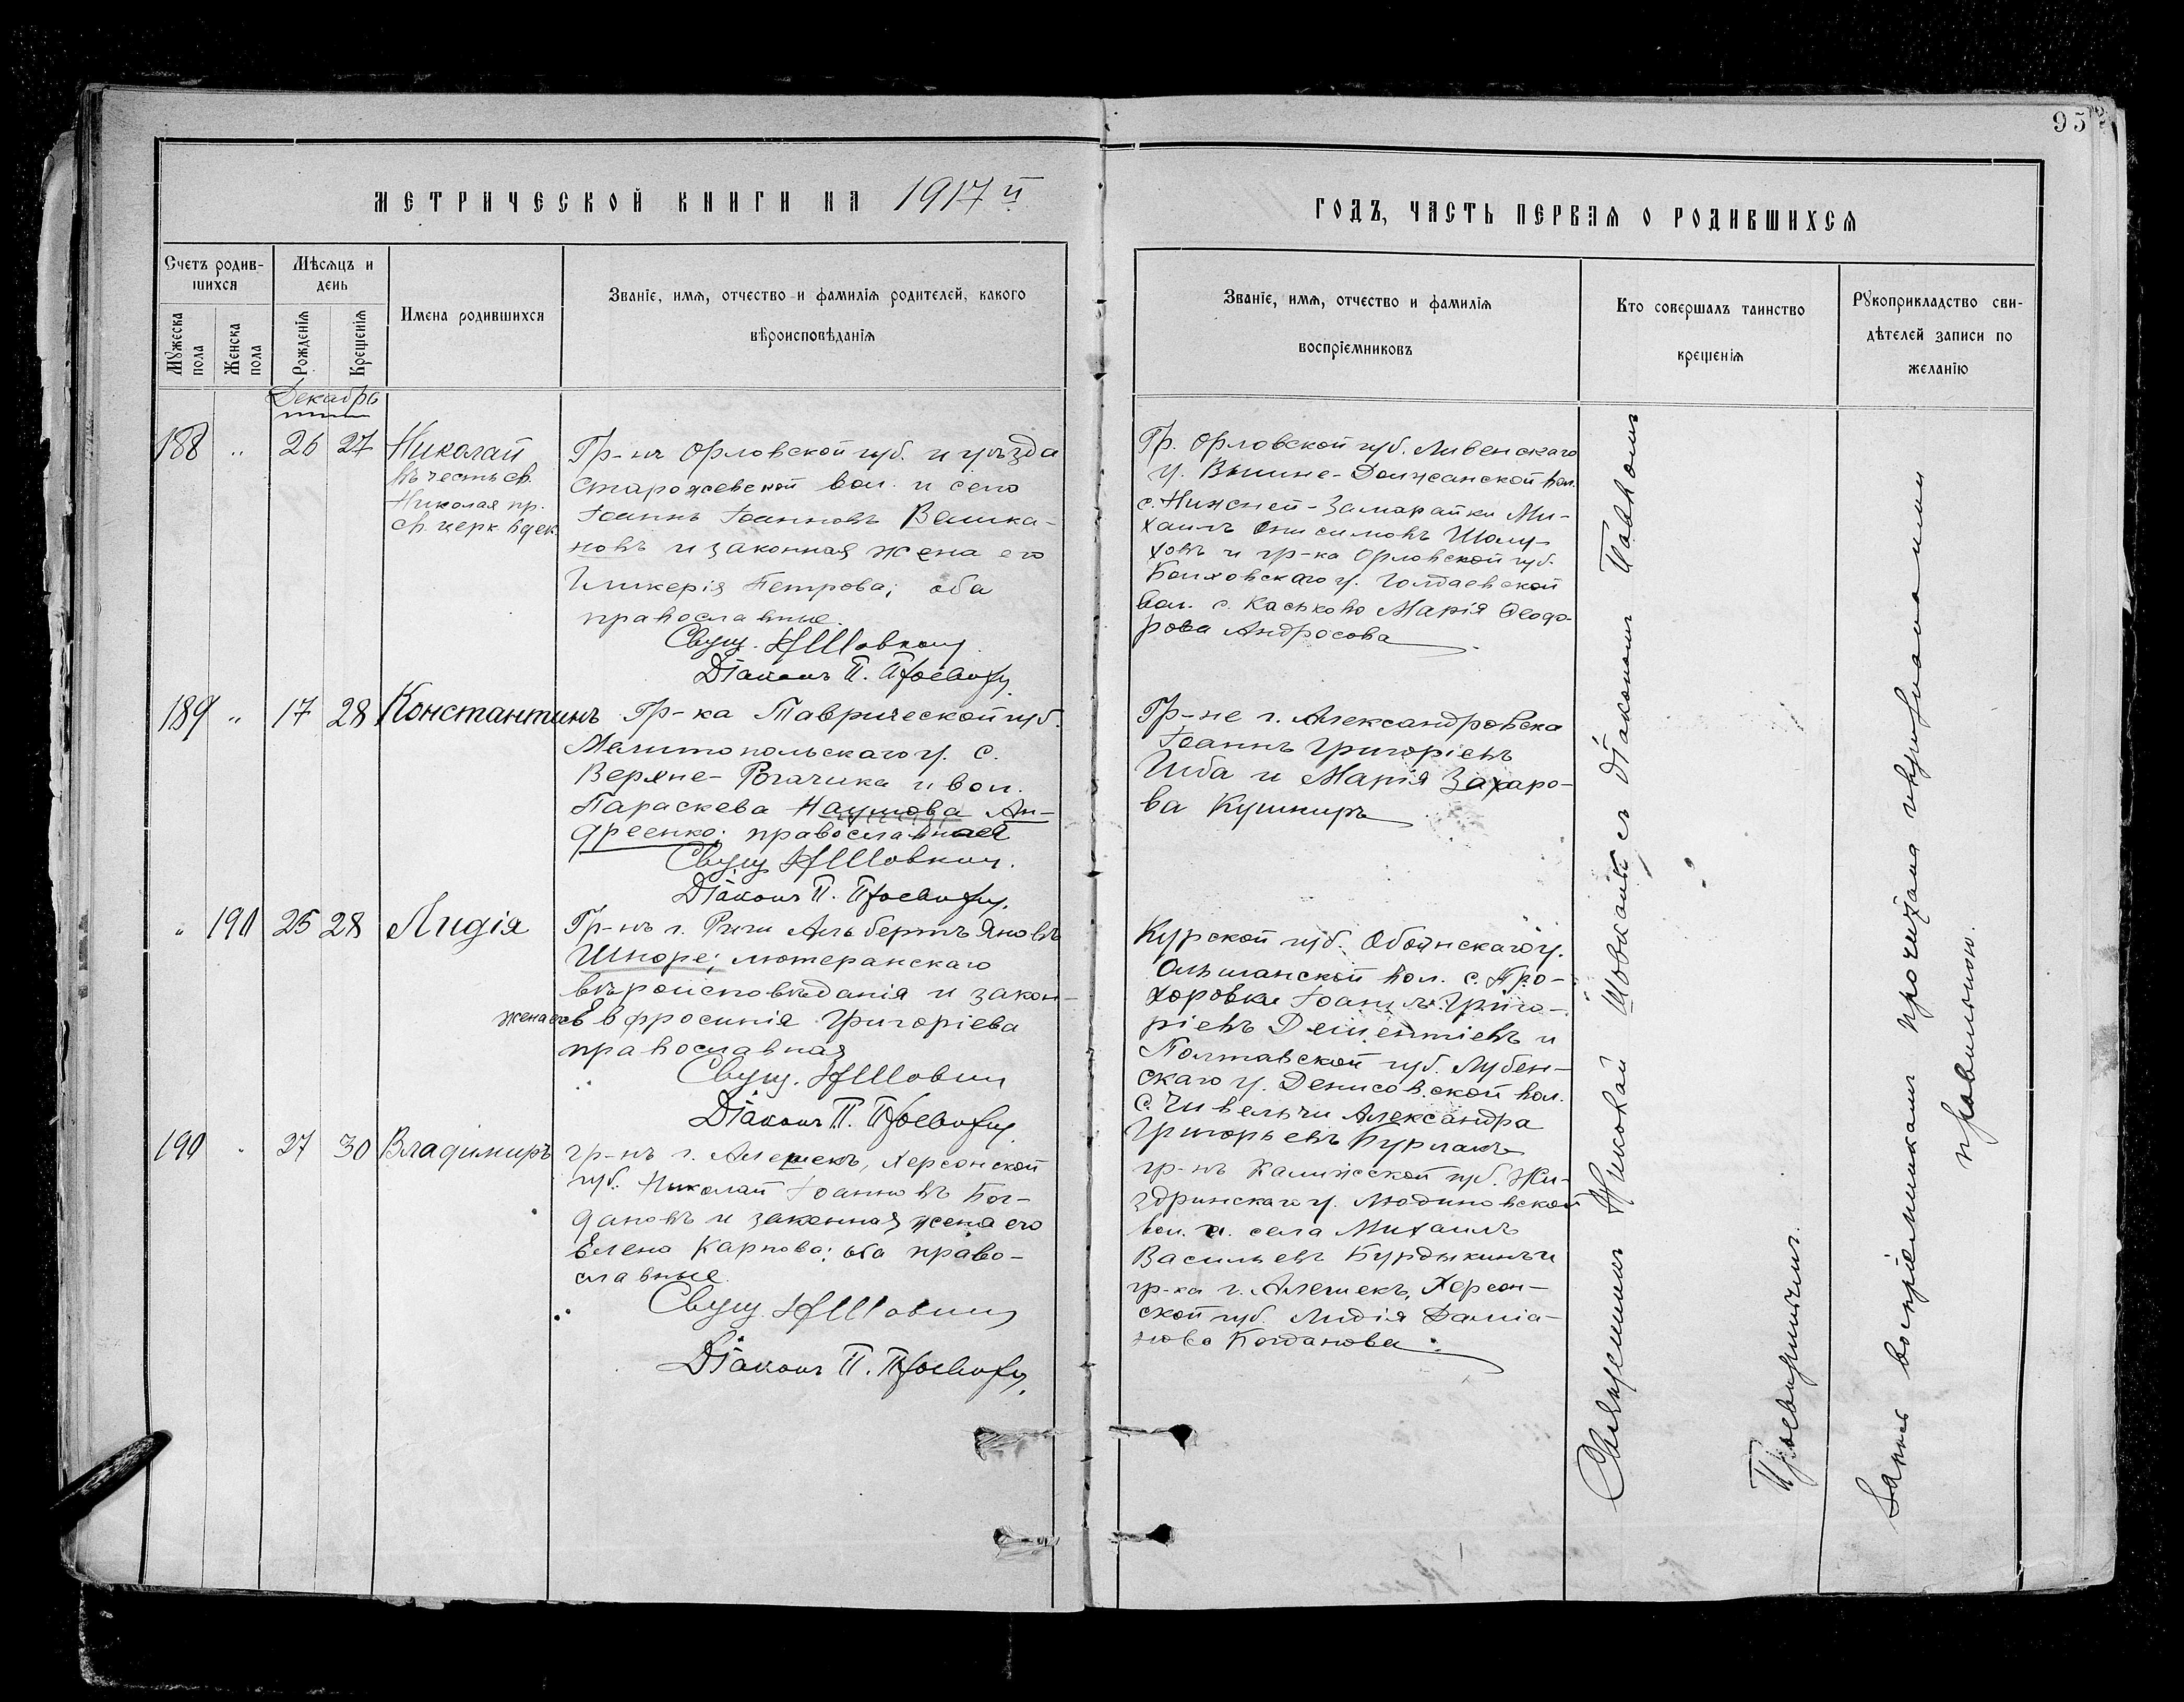 95
МЕТРИЧЕСКОЙ КНИГИ НА 1917 й
ГОДЪ, ЧАСТЬ ПЕРВАЯ О РОДИВШИХСЯ
Счетъ родив-
шихся
Мужеска
пола
Женска
пола
Мѣсяцъ и
день
Рожденія
Крещенія
Имена родившихся
Званіе, имя, отчество и фамилія родителей, какого
вѣроисповѣданія
Званіе, имя, отчество и фамилія
воспріемниковъ
Кто совершалъ таинство
крещенія
Рукоприкладство сви-
дѣтелей записи по
желанію
Декабрь
188 " 26 27 Николай
въ честь св.
Николая пр.
св. церк. 6 дек.
Гр-нъ Орловской губ. и уѣзда
Старожевской вол. и села
Іоаннъ Іоанновъ
новъ и законная жена его
Гликерія Петрова; оба
православные.
Свущ. Н Шовкопл.
Діаконъ П.
Гр. Орловской губ. Ливенскаго
у. Вышне-Должанской вол.
с. Нижней-Замарайки Ми-
хаилъ Онисимовъ Шолу-
ховъ и гр-ка Орловской губ.
Болховскаго у. Голдаевской
вол. с. Каськово Марія Ѳеодо-
рова Андросова
189 " 17 28 Константинъ
Гр-ка Таврической губ.
Мелитопольскаго у. с.
Верхне-Рогачика и вол.
Параскева Наумова Ан-
дреенко; православная
Свущ. Н Шовкопл.
Діаконъ П.
Гр-не г. Александровска
Іоаннъ Григоріевъ
и Марія Захаро-
ва Кушниръ
" 191 25 28 Лидія
Гр-нъ г. Риги Альбертъ Яновъ
Шноре; лютеранскаго
вѣроисповѣданія и закон-
жена его Евфросинія Григоріева
православная
Свущ. Н Шовкопл.
Діаконъ П.
Курской губ. Обоянскаго у.
Ольшанской вол. с. Про-
хоровки Іоаннъ Григо-
ріевъ Дементіевъ и
Полтавской губ. Лубен-
скаго у. Денисовской вол.
с. Чивельчи Александра
Григорьевъ Бурлака
190 " 27 30 Владиміръ
гр-нъ г. Алешекъ, Херсонской
губ. Николай Іоанновъ Бог-
дановъ и законная жена его
Елена Карпова; оба право-
славные.
Свущ. Н Шовкопл.
Діаконъ П.
гр-нъ Калужской губ. Жи-
здринскаго у. Людиновской
вол. и села Михаилъ
Васильевъ Бурдыкинъ и
гр-ка г. Алешекъ, Херсон-
ской губ. Лидія Даміа-
нова Богданова
Священникъ Николай съ діакономъ Павломъ
Запись воспріемникамъ прочитана и
правильною.